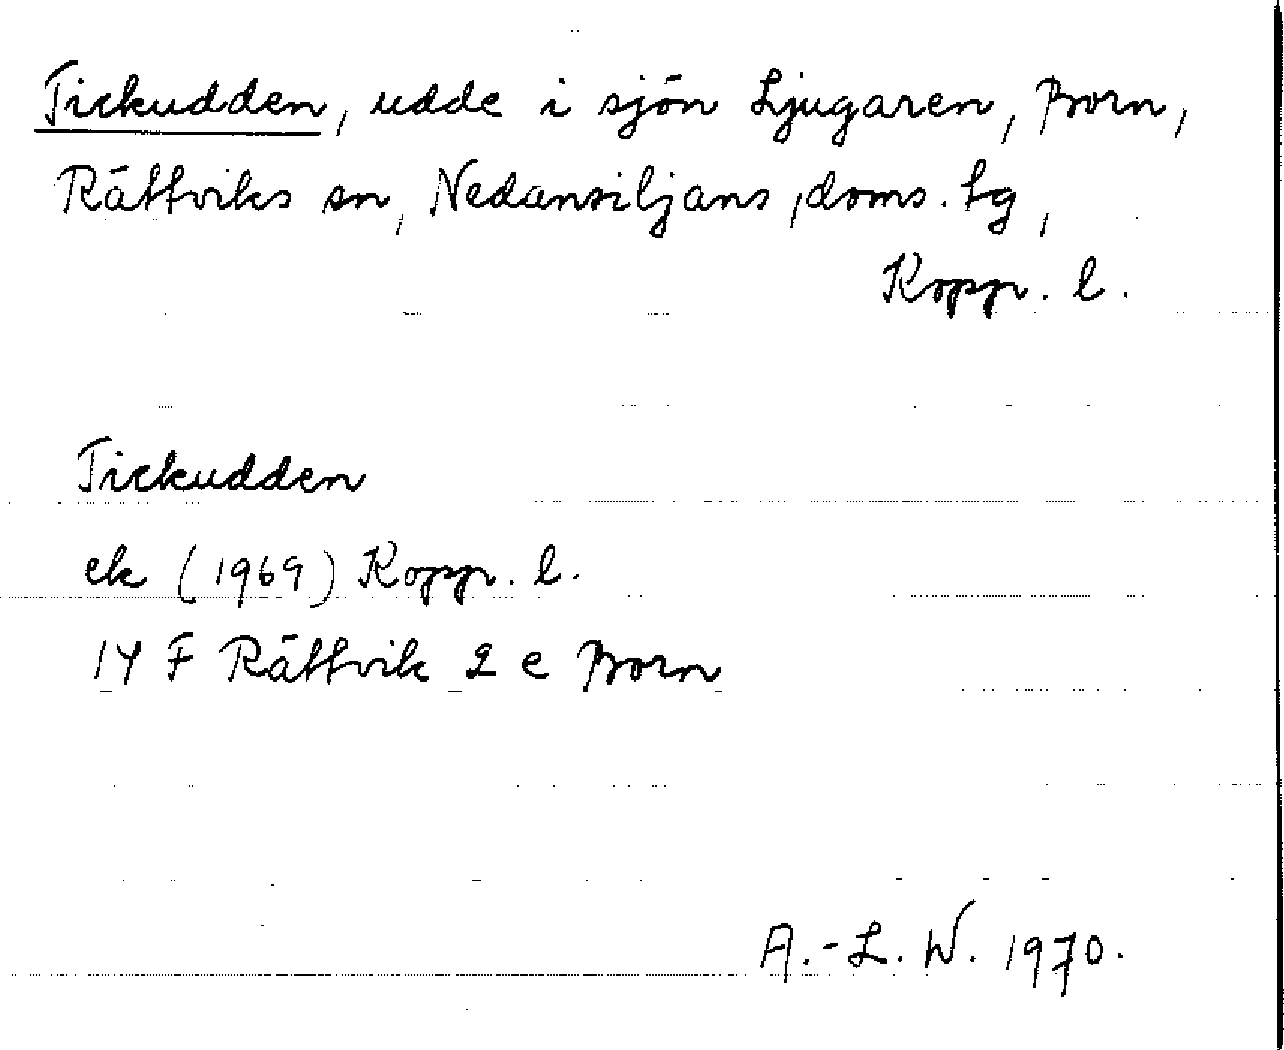 Tickudden, udde i sjön Ljugaren, Born,
Rättviks sn, Nedansiljans doms. tg,
Kopp. l.
Tickudden
ek (1969) Kopp. l.
14 F Rättvik 2 e Born
A.-L. W. 1970.